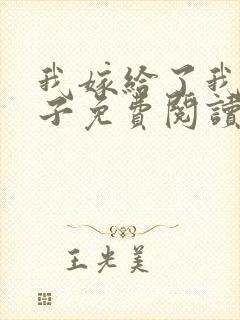 我嫁給了我
子免費閱讀
王光美